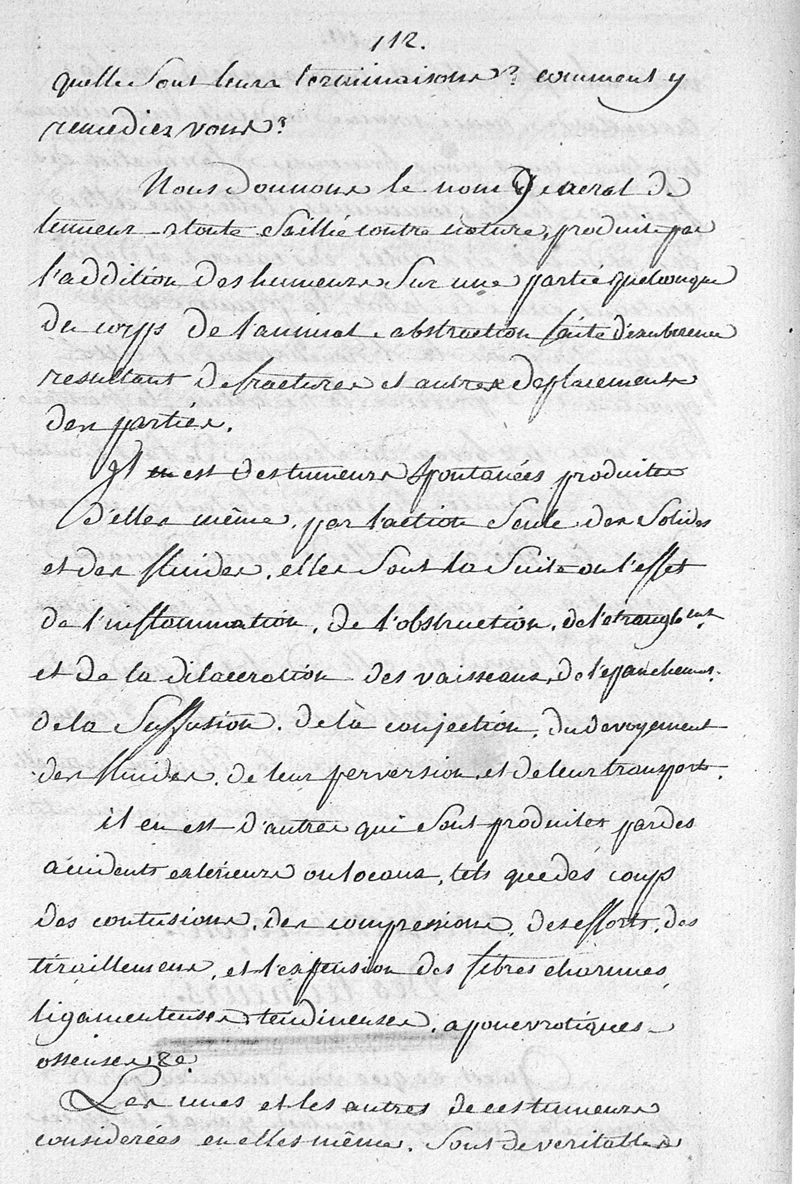 112.
quelle sont leurs terminaisons ? comment y
remediez vous ?
Nous donnons le nom General de
tumeur a toute Saillie contre nature, produite par
l'addition des humeurs Sur une partie quelconque
du corps de l'animal abstraction faite
resultant de fractures et autres deplacements
des parties.
Il est des tumeurs Spontanées produites
D'elles même, par l'action Seule des Solides
et des fluides, elles Sont la Suite ou l'effet
de l'inflammation, de l'obstruction, de l'etranglemt
et de la dilaceration des vaisseaux, de l'epanchement
de la Suffusion, de la conjection, du devoyement
des fluides, de leur perversion, et de leur transport.
il en est d'autres qui Sont produites par des
accidents exterieurs ou locaux, tels que des coups
des contusions, des compressions, des efforts, des
tiraillemens, et l'extension des fibres charnues,
ligamenteuses tendineuses, aponevrotiques
osseuses &c
Les unes et les autres de ces tumeurs
considerées en elles même, Sont de veritables